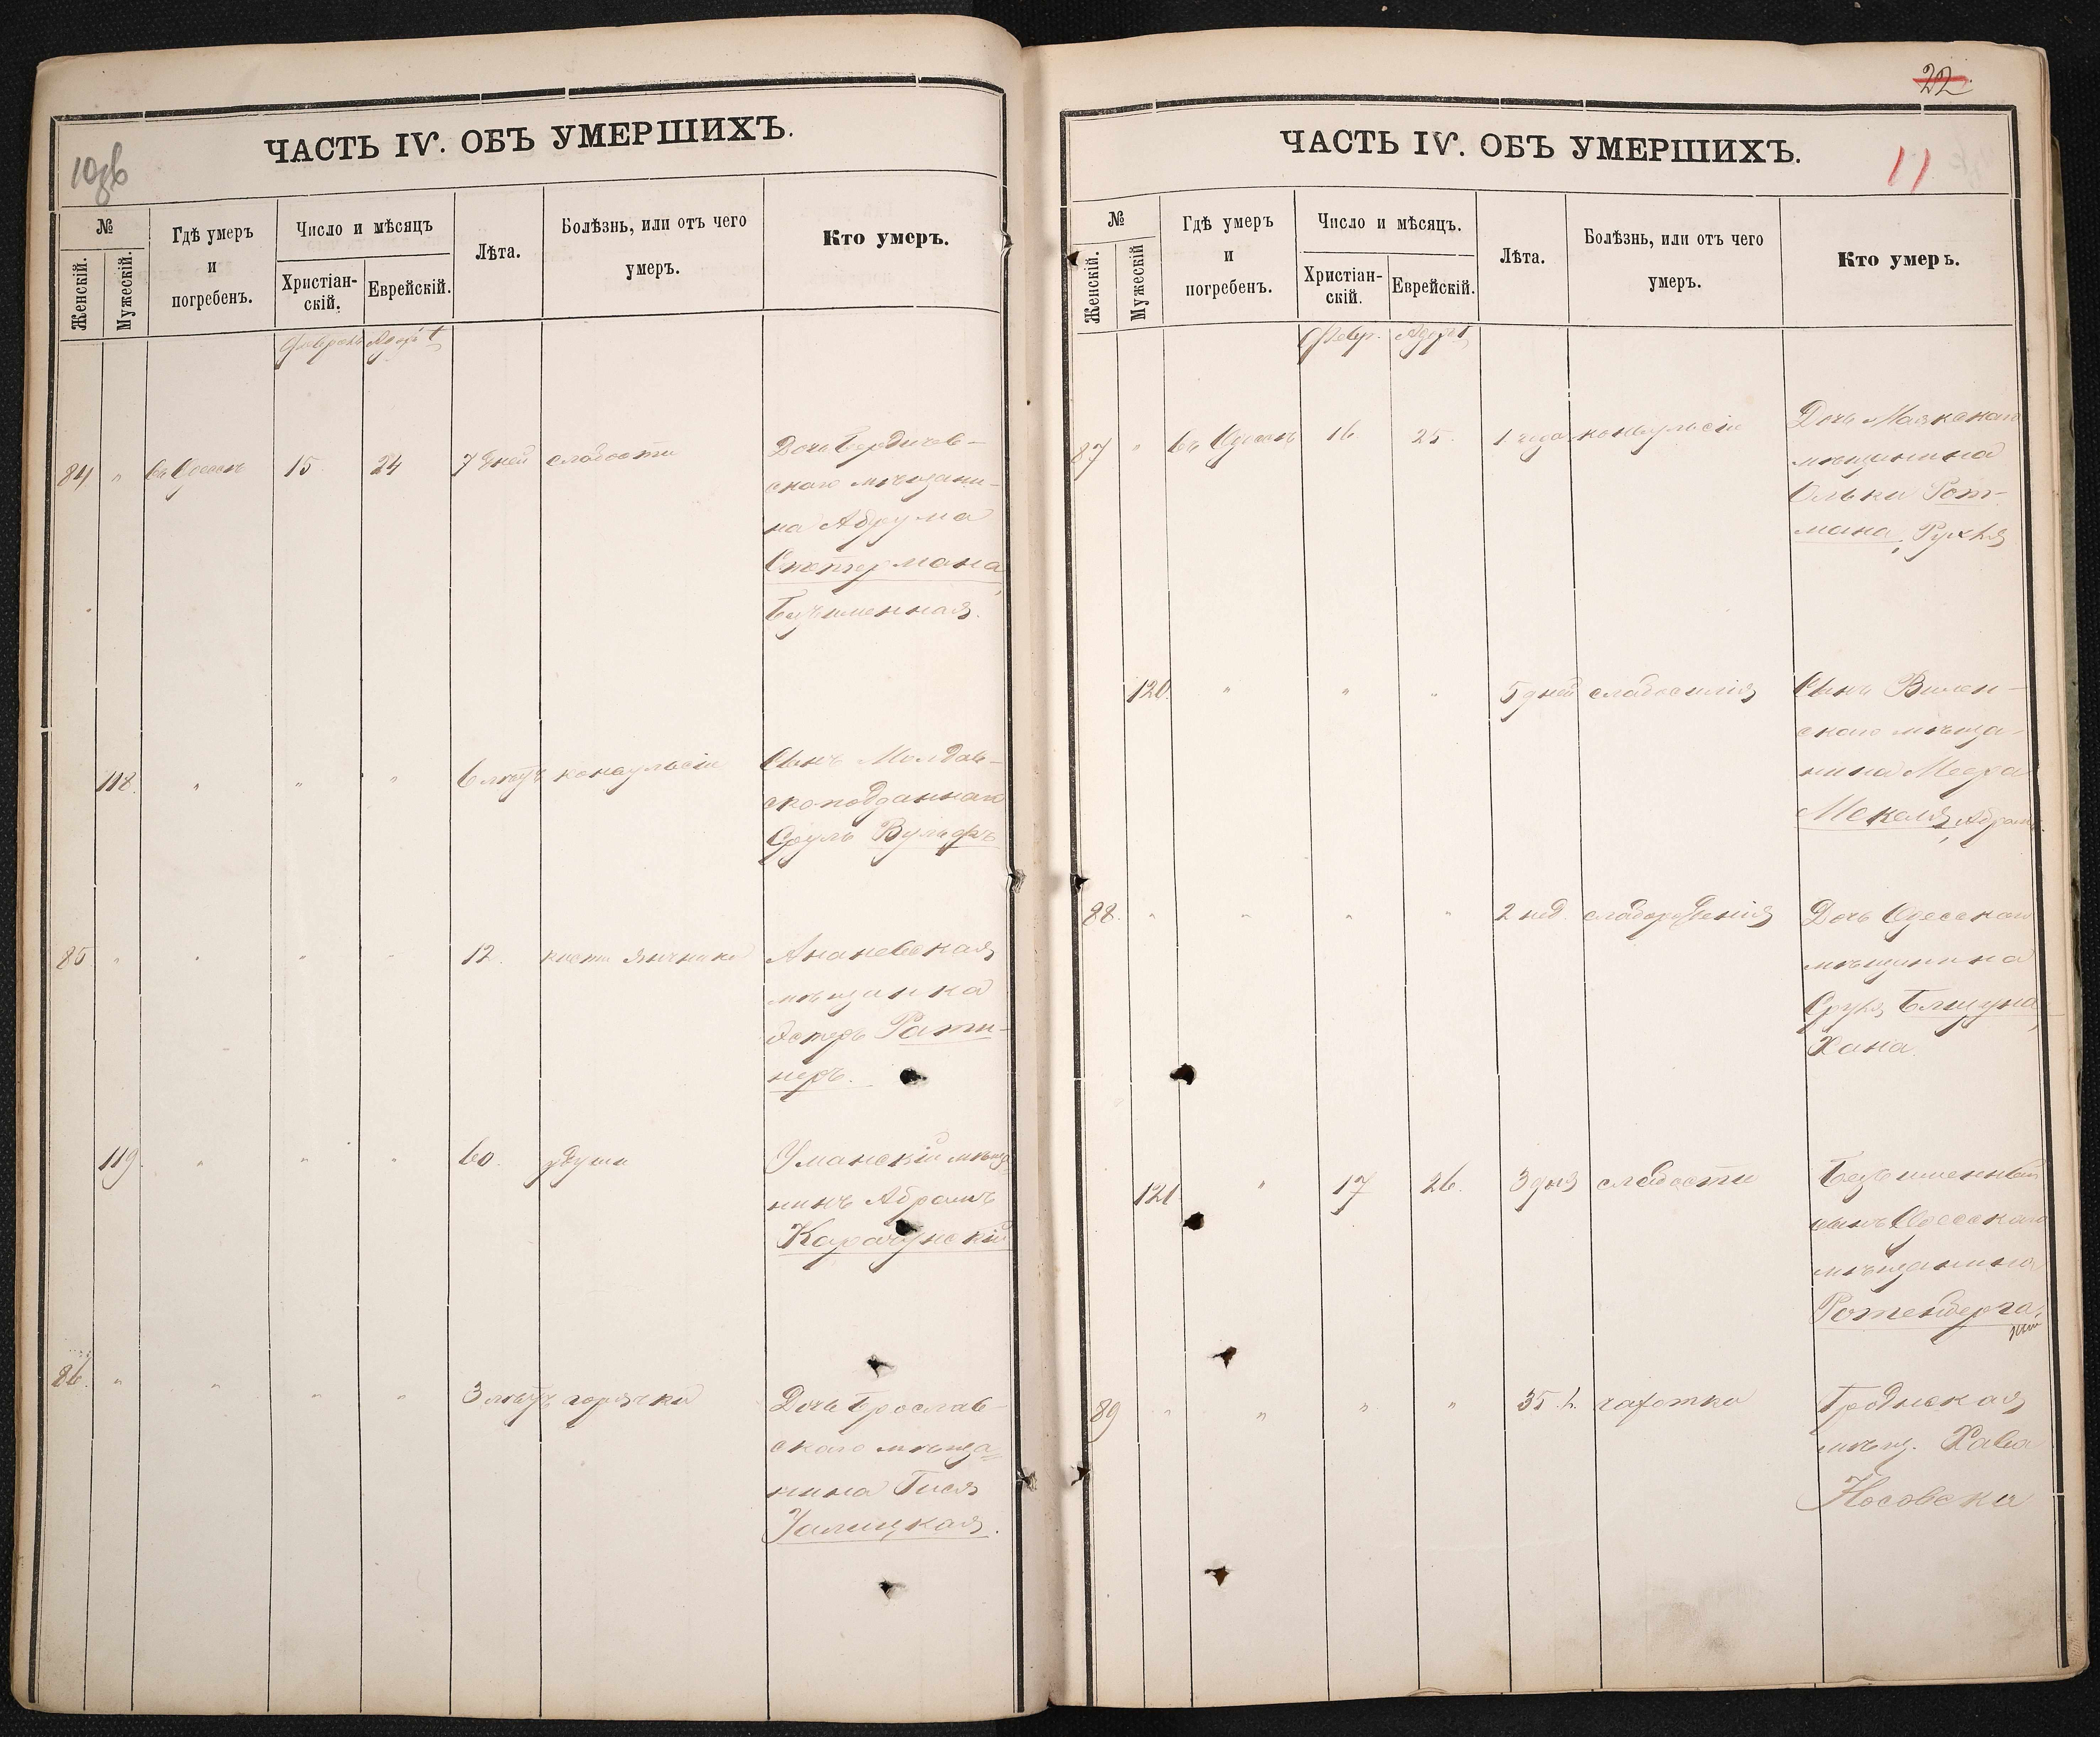 10об
ЧАСТЬ IV. ОБЪ УМЕРШИХЪ.
№
Женскій.
Мужескій.
Гдѣ умеръ
и
погребенъ.
Число и мѣсяцъ
Христіан-
скій.
Еврейскій.
Лѣта.
Болѣзнь, или отъ чего
умеръ.
Кто умеръ.
Февраль Адаръ 1
84 " въ Одессѣ 15 24 7 дней слабости
Дочь Бердичев-
скаго мѣщани-
на Абрума
Спектормана,
Безъименная.
118. " " " 6 лѣтъ конвульсіи
Сынъ Молдав-
скоподданнаго
Сруль Вульфъ
85 " " " " 12.
Ананевская
мѣщанка
Эстеръ Рати-
неръ.
119. " " " 60. удуши
Уманскій мѣща-
нинъ Абрамъ
Карачунскій
86. " " " " 3 лѣтъ горячки
Дочь Брослав-
скаго мѣща-
нина Гися
Улицкая.
22
ЧАСТЬ IV. ОБЪ УМЕРШИХЪ.
11
№
Женскій.
Мужескій
Гдѣ умеръ
и
погребенъ.
Число и мѣсяцъ.
Христіан-
скій.
Еврейскій.
Лѣта.
Болѣзнь, или отъ чего
умеръ.
Кто умеръ.
Февр. Адаръ 1
87 " въ Одессѣ 16 25. 1 года конвульсіи
Дочь Маякскаго
мѣщанина
Рот-
мана, Рухля
120. " " " 5 дней слабосилія
Сынъ Вилен-
скаго мѣща-
нина Меера
Мекеля, Абрамъ.
88. " " " " 2 нед. слаборожденія
Дочь Одесскаго
мѣщанина
Сруля
Хана.
121 " 17 26. 3 дня слабости
Безъименный
сынъ Одесскаго
мѣщанина
Ротенберга.
89 " " " " 35. л. чахотка
Гроднская
мѣщ. Хава
Носовска